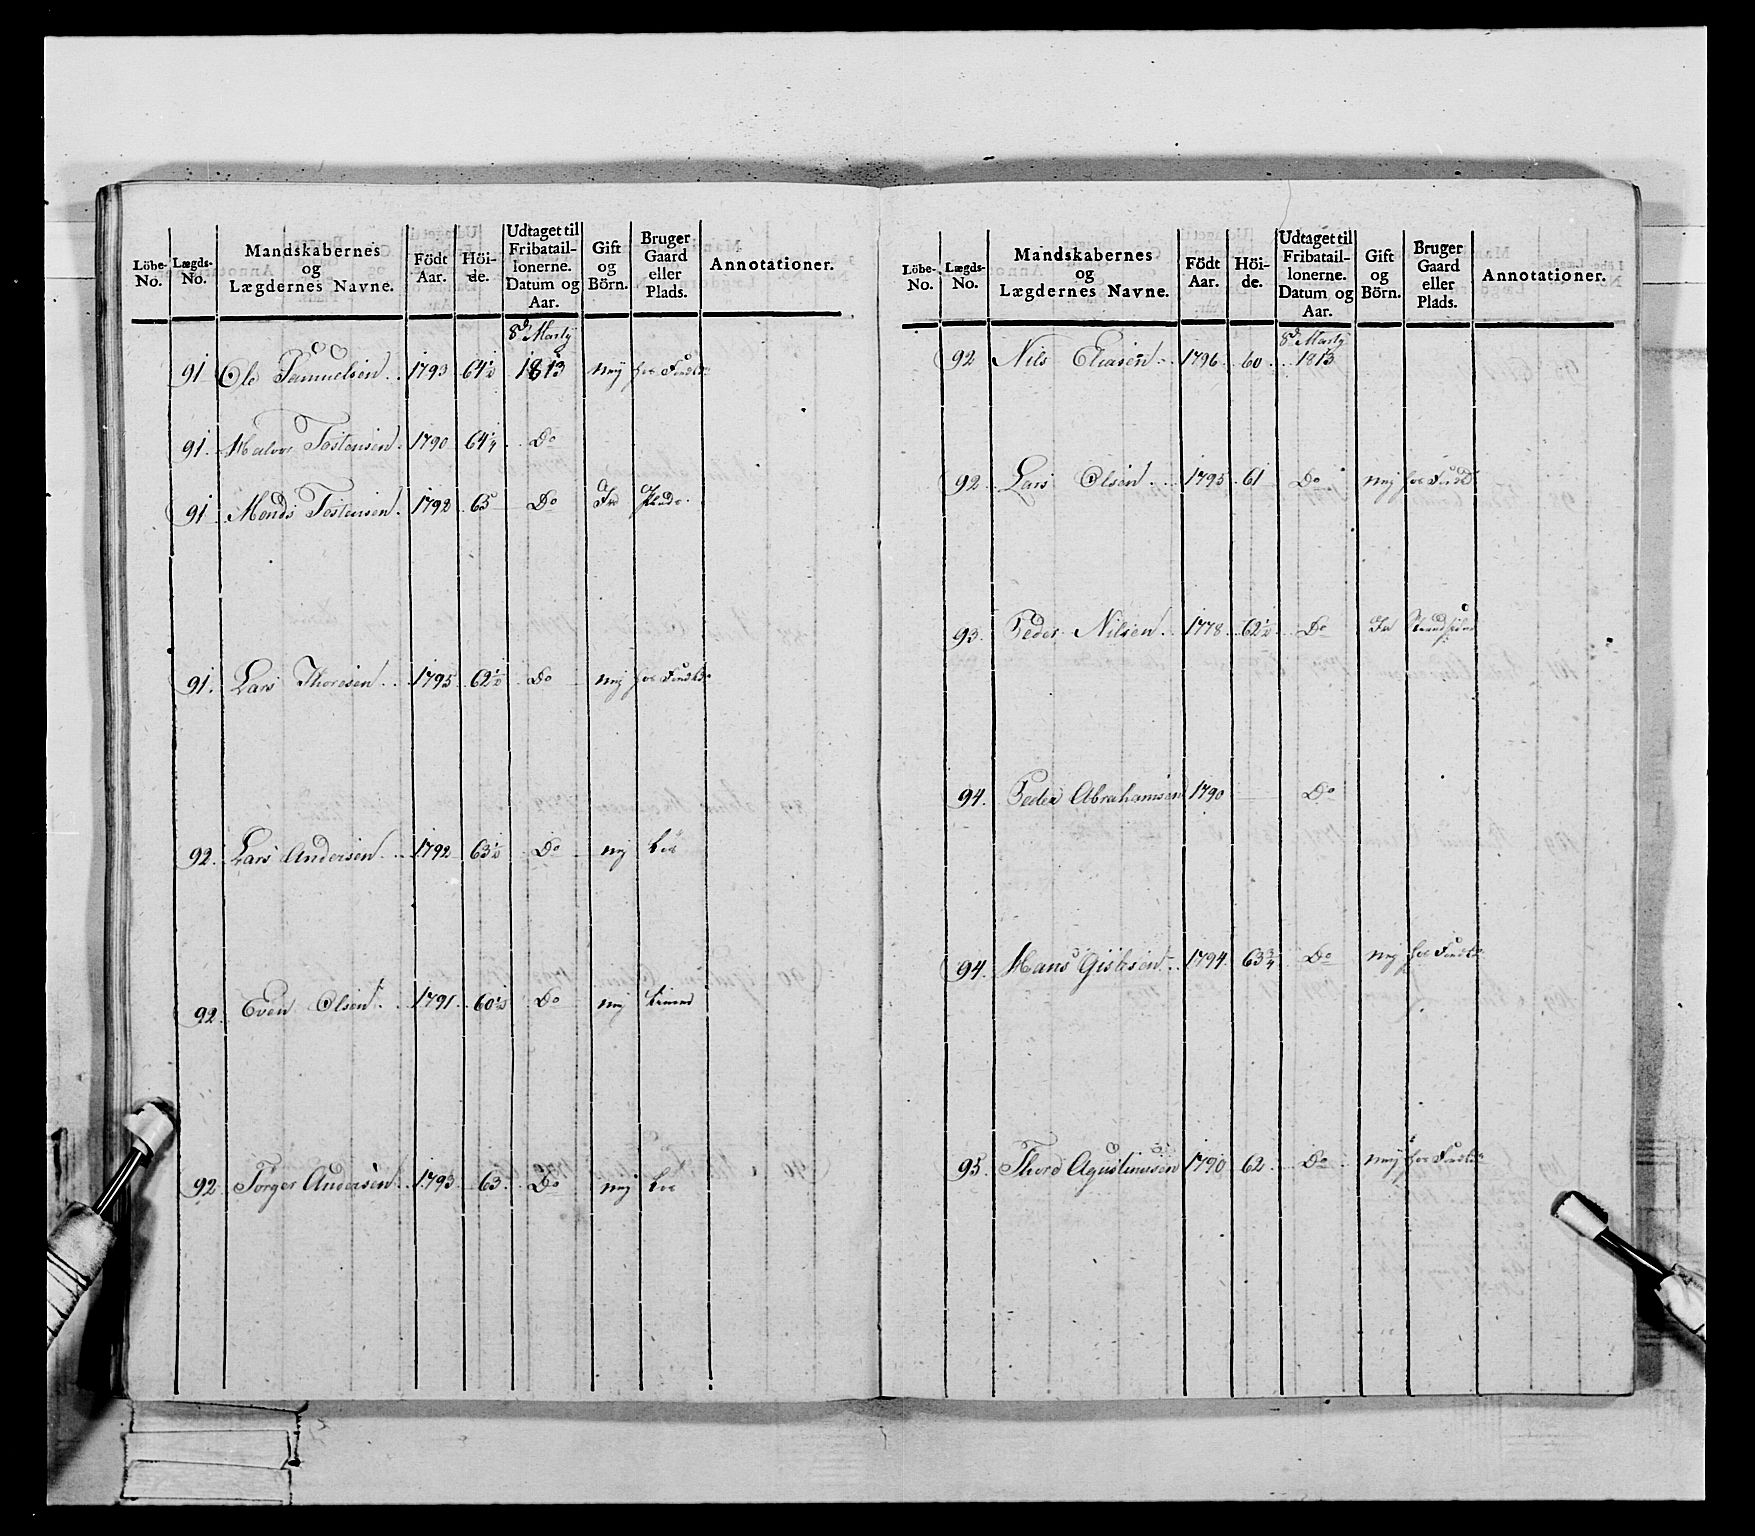 Löbe-No. Lægds-No. Mandskabernes og Lægdernes Navne. Födt Aar. Höi-de. Udtaget til Fribatail-lonerne. Datum og Aar. Gift og Börn. Bruger Gaard eller Plads. Annotationer.
8de Marty
91 Ole Samuelsen 1793 64½ 1813 nej
91. Halvor Tostensen 1790 64¼ Do
91 Monds Tostensen. 1792 65 Do
91. Lars Thoresen 1795 62½ Do nej
92. Lars Andersen 1792 63½ Do nej
92. Even Olsen 1791 60½ Do nej
92 Torger Andersen 1793 63 Do nej
Löbe-No. Lægds-No. Mandskabernes og Lægdernes Navne. Födt Aar. Höi-de. Udtaget til Fribatail-lonerne. Datum og Aar. Gift og Börn. Bruger Gaard eller Plads. Annotationer.
8de Marty
92 Nils Eliasen 1796 60 1813
92. Lars Olsen 1795 61 Do nej
93. Peder Nilsen 1778 62½ Do
94. Peder Abrahamsen 1790 Do
94. Hans Gislesen 1794 63¾ Do nej
95. Thord Agustinusen 1790 62 Do nej